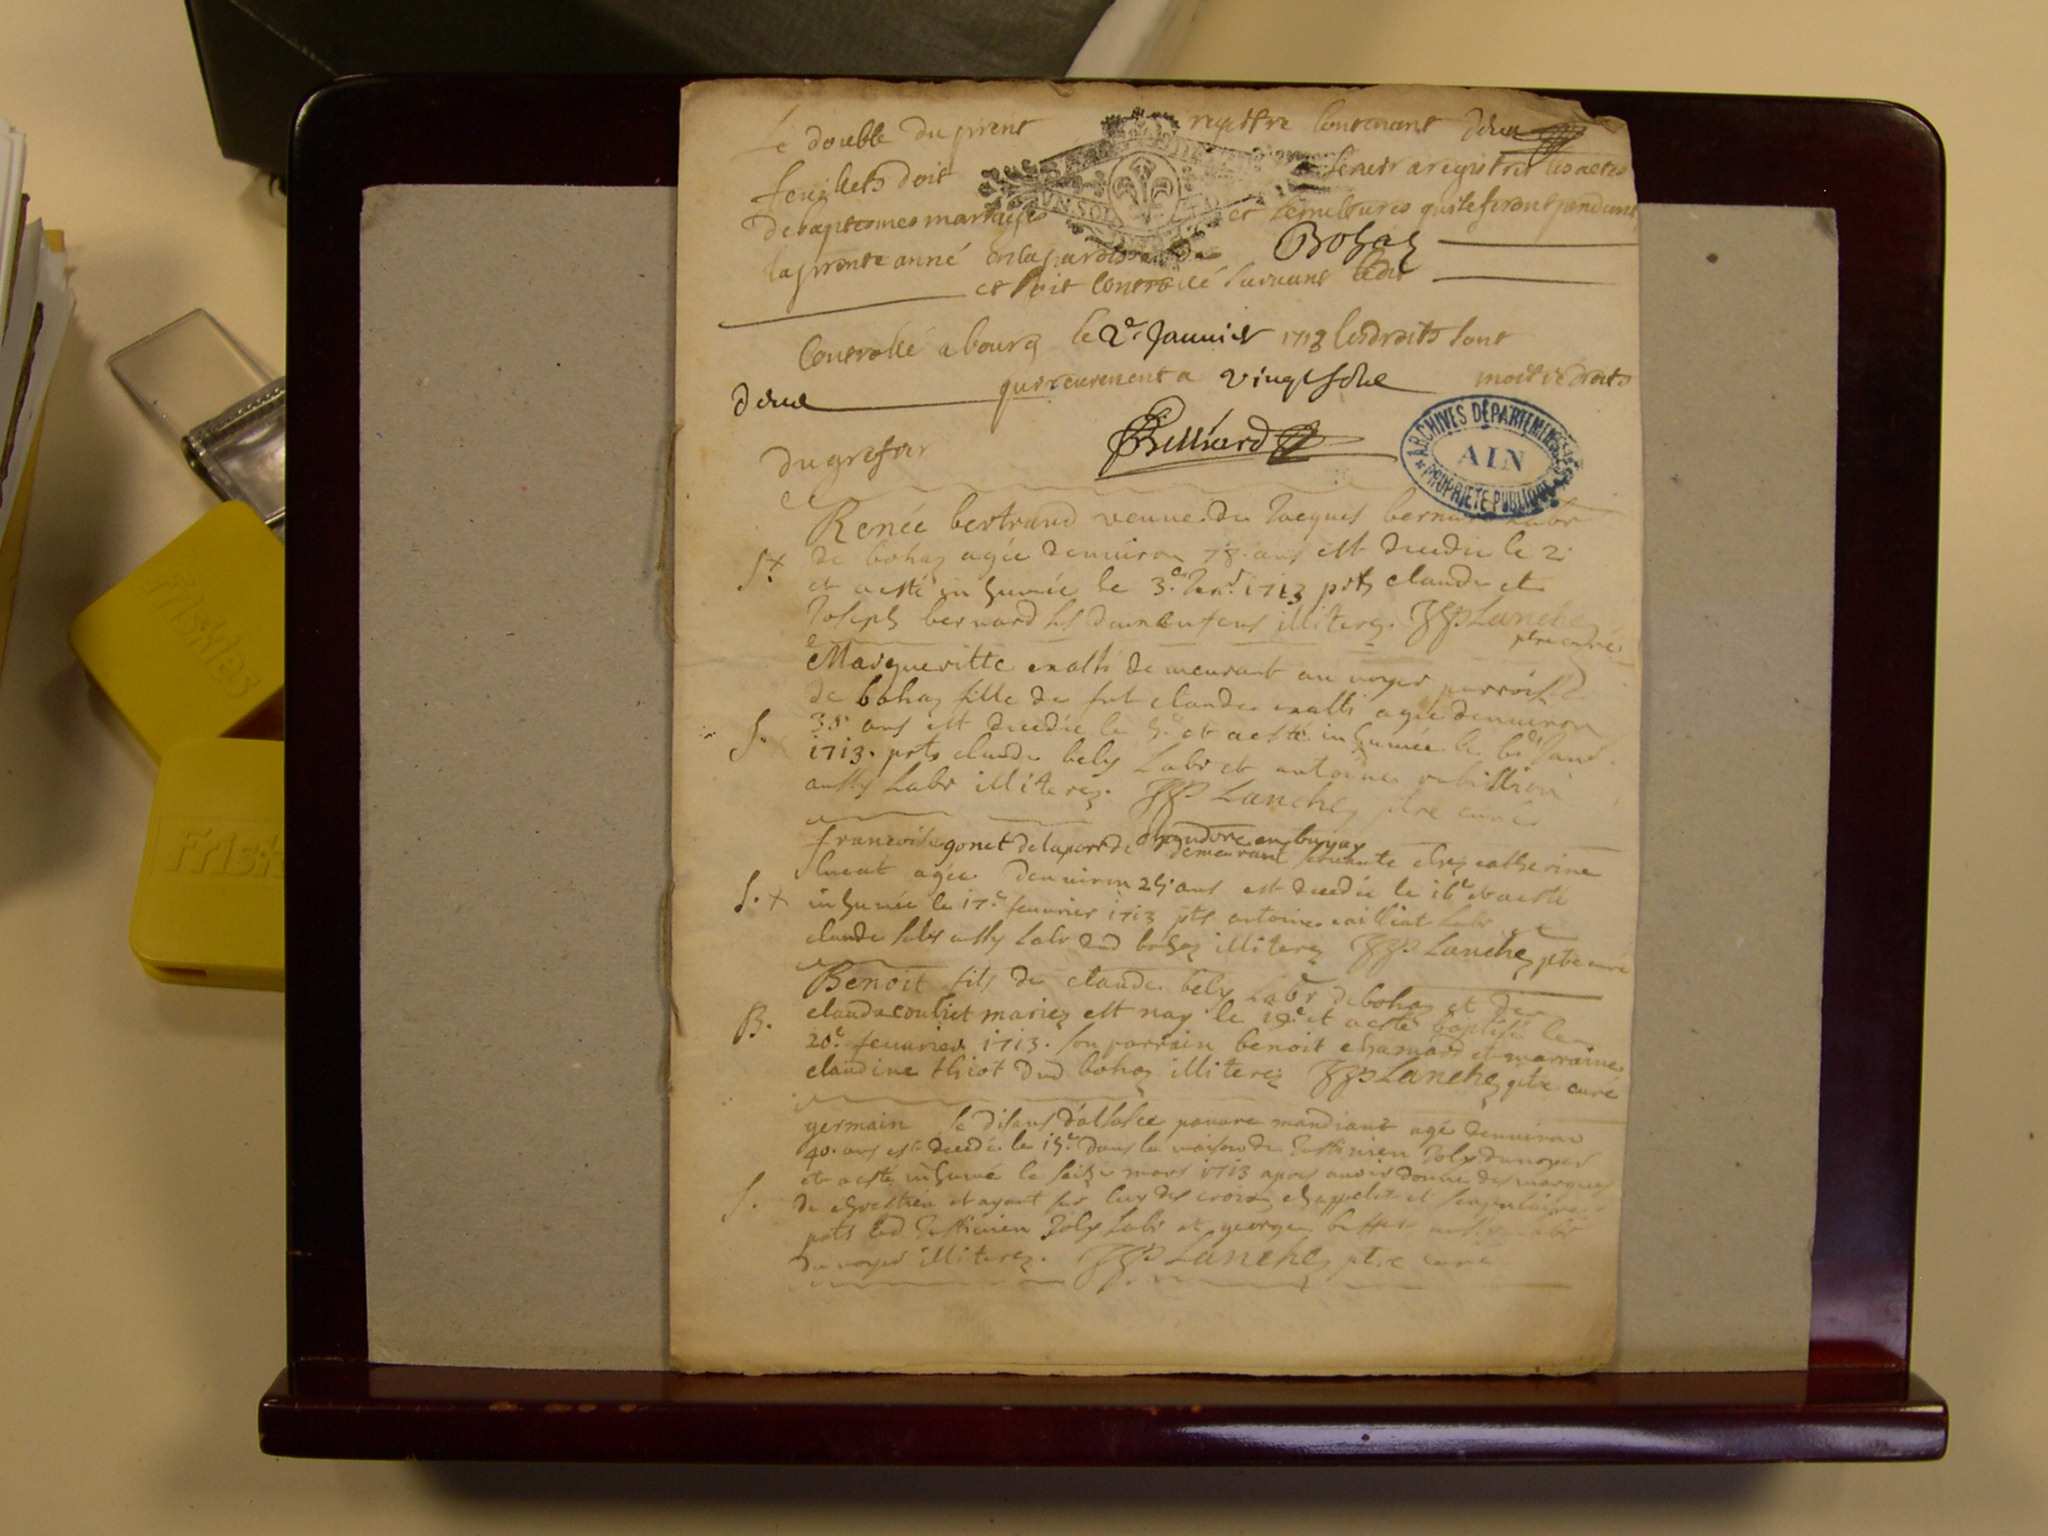 Le double du pñent registre contenant deux
feuillets doit servir a registrer les actes
de baptesmes mariages et sepultures qui se feront pendant
la pñente anné en la paroisse de Bohaz
et soit controllé suivant ledit
Controllé a bourg le 2e Januier 1713 les droits sont
deux vingt sols moitié droits
du grefier
Billiard
ARCHIVES DÉPARTEMENTALES
AIN
PROPRIÉTÉ PUBLIQUE
Renée bertrand veuue de Jacques bernard labr
S+ de bohaz agée denuiron 78 ans est decedée le 2
et a esté inhumée le 3e Janr 1713 pnts claude et
Joseph bernard illiterez. Lanchez
ptre curé
Margueritte demeurant au noyer parroisse
de bohaz fille de fut claude agée denuiron
S. 35 ans est decedée le 5e et a esté inhumée le 6e Janr
1713. pnts claude bely Labr et antoine rebillion
aussy Labr illiterez. Lanchez ptre curé
francoise gonet de la parr de chandore en bugay
demeurant seruante chez catherine
agée denuiron 25 ans est decedée le 16e et a esté
S. + inhumée le 17e feuurier 1713 pnts antoine Labr et
claude aussy Labr dud bohaz illiterez Lanchez ptre curé
Benoit fils de claude bely Labr de bohaz et de
B. clauda couliet mariez est nay le 19e et a esté baptisé le
20e feuurier 1713. son parrain benoit chanard et marraine
claudine thiot dud bohaz illiterez Lanchez ptre curé
germain se disant d'allsace pauure mandiant agé denuiron
40 ans est decedé le 15e dans la maison de Joly du noyer
et a esté inhumé le seize mars 1713 apres auoir donné des marques
S. de chrestien et ayant sur luy des croix chappelet et scapulaire
pnts led Joly Labr et george aussy labr
du noyer illiterez. Lanchez ptre curé
Friskies
Frisk